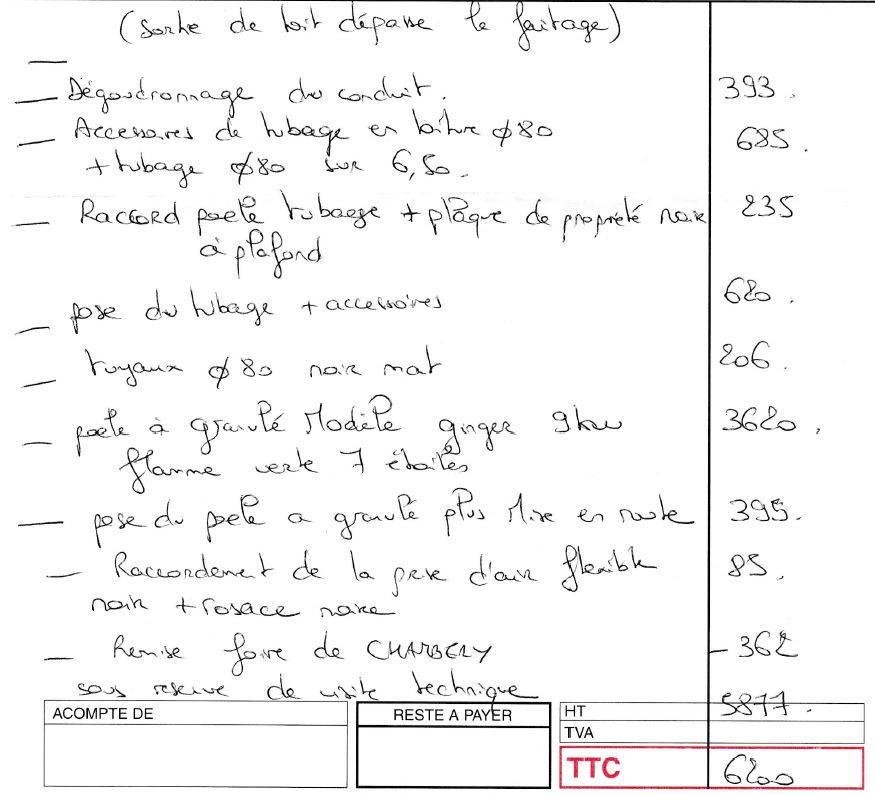 (Sortie de toit dépasse le faitage)
— Dégoudronnage du conduit. 393.
— Accessoires de tubage en toiture ø80 685.
+ tubage ø80 sur 6,50.
— Raccord poele tubage + plaque de propreté noir 235
à plafond
— pose du tubage + accessoires 620.
— tuyaux ø 80 noir mat 206.
— poele à granulé Modèle ginger 9kw 3620.
flamme verte 7 étoiles
— pose du poele a granulé plus Mise en route 395.
— Raccordement de la prise d'air flexible 85.
noir + rosace noire
— Remise foire de CHAMBERY - 362
sous reserve de visite technique
ACOMPTE DE RESTE A PAYER HT 5877.
TVA
TTC 6200